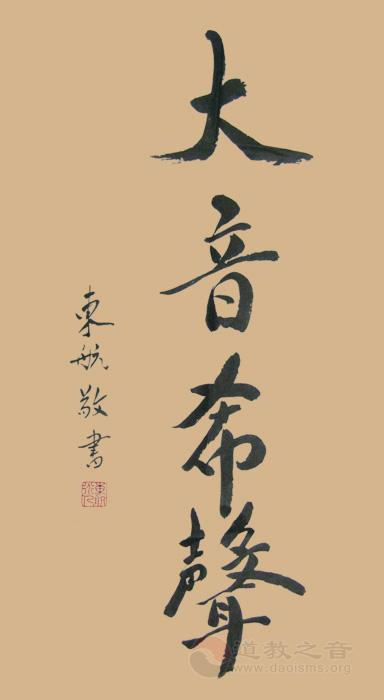 大音希聲
東航敬書
道教之音
www.daoisms.org